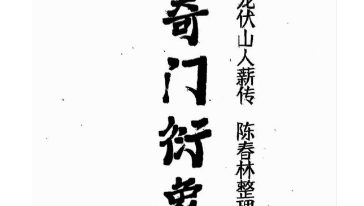 奇门衍象
龙伏山人薪传 陈春林整理